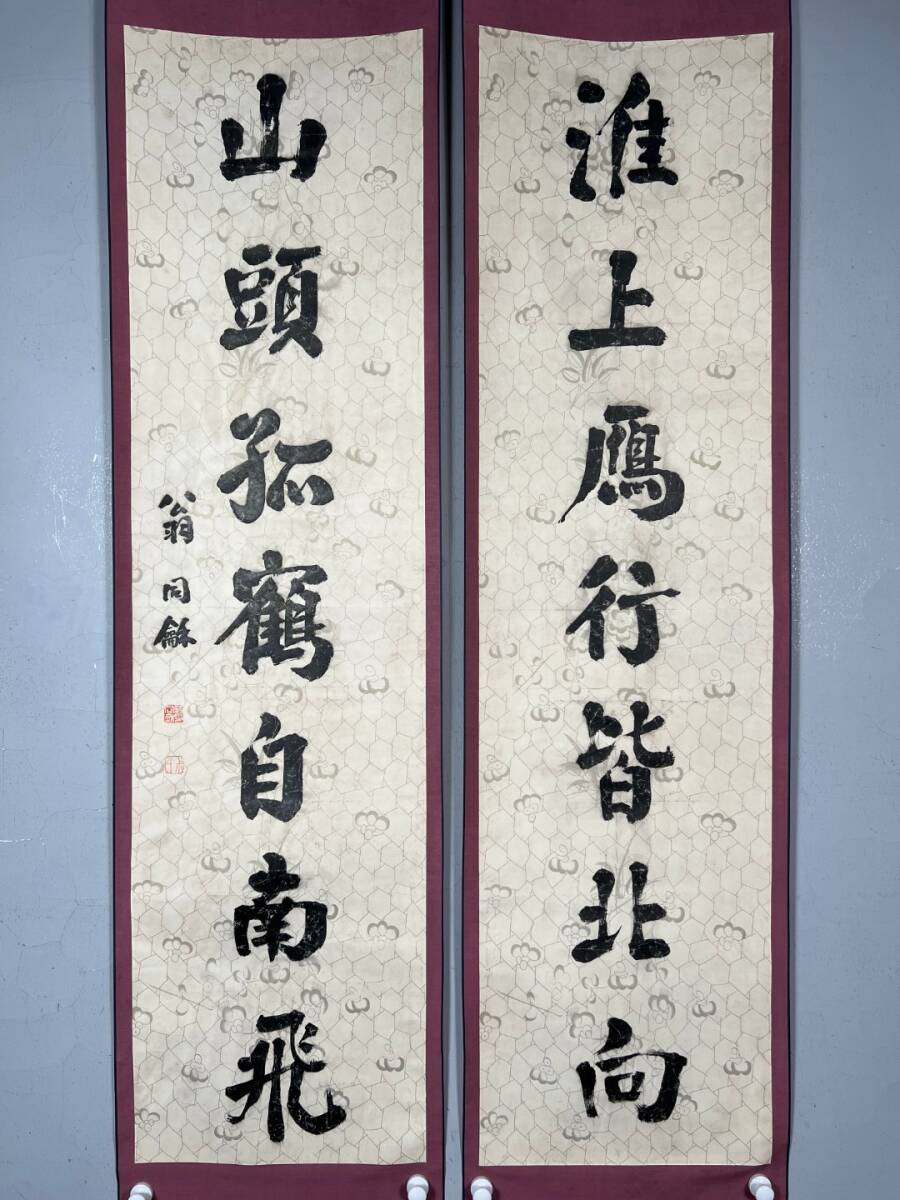 淮上鴈行皆北向
山頭孤鶴自南飛
翁同龢